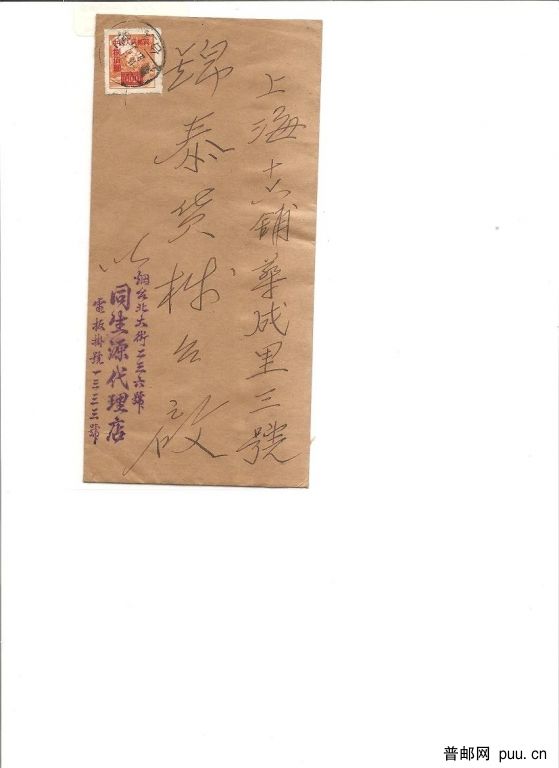 上海十六铺華成里三號
錦泰货栈台啟
烟台北大街二三六號
同生源代理店
電报掛號一三三三號
普邮网 puu.cn